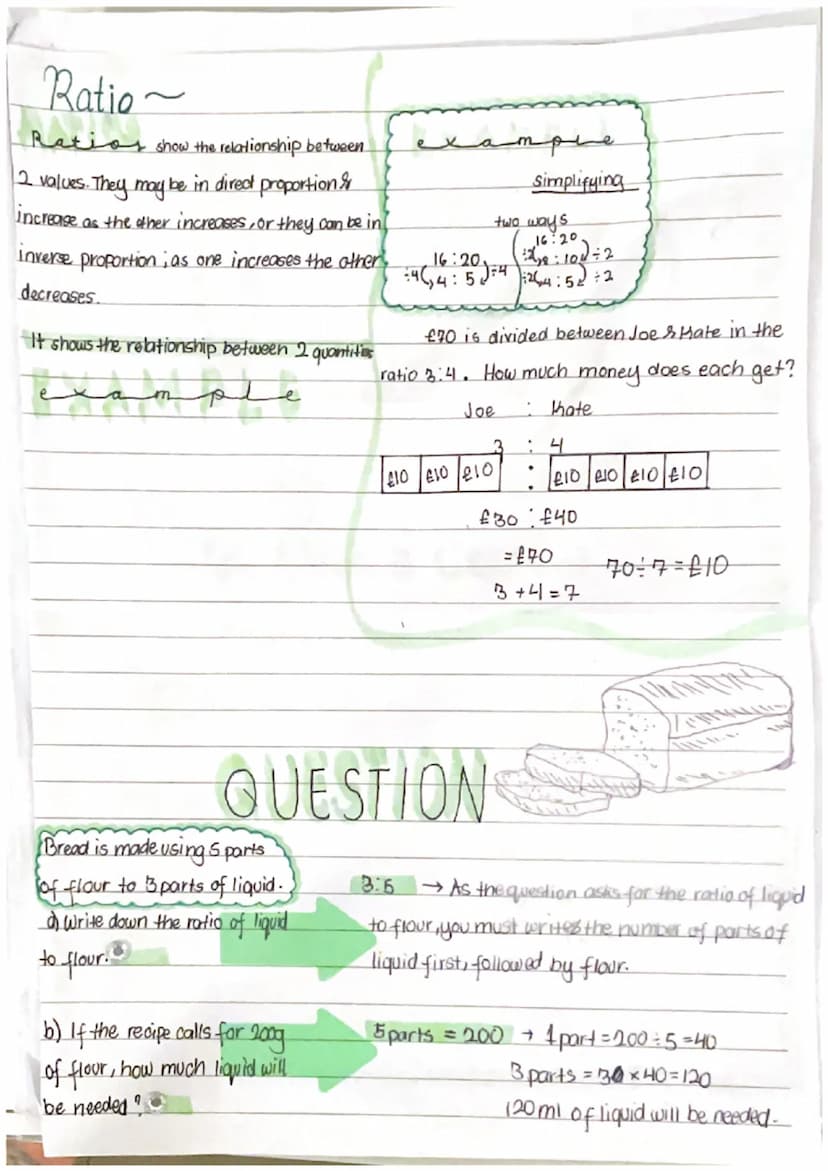 Ratio ~
Ratios show the relationship between
2 values. They may be in direct proportion &
increase as the other increases, or they can be in
inverse proportion ; as one increases the other
decreases.
It shows the relationship between 2 quantities
example
example
simplifying
two ways
16 : 20
÷4 ( 4 : 5 ) ÷4
16 : 20
÷2 ( 8 : 10 ) ÷2
÷2 ( 4 : 5 ) ÷2
£70 is divided between Joe & Kate in the
ratio 3:4. How much money does each get?
Joe : Kate
3 : 4
£10 £10 £10 : £10 £10 £10 £10
£30 : £40
= £70
70÷7=£10
3+4=7
QUESTION
Bread is made using 5 parts
of flour to 3 parts of liquid.
a) Write down the ratio of liquid
to flour.
3:5 → As the question asks for the ratio of liquid
to flour, you must write the number of parts of
liquid first, followed by flour.
b) If the recipe calls for 200g
of flour, how much liquid will
be needed?
5 parts = 200 → 1 part = 200÷5=40
3 parts = 3 ×40=120
120 ml of liquid will be needed.